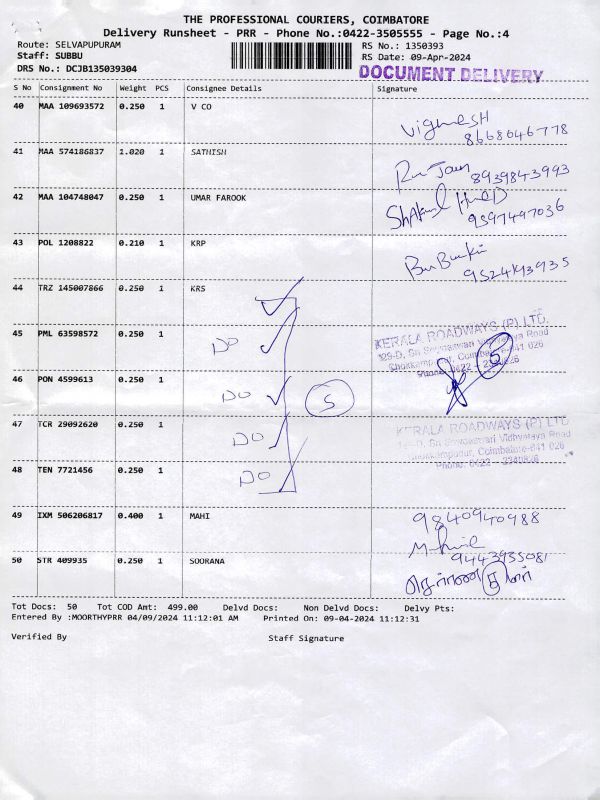 THE PROFESSIONAL COURIERS, COIMBATORE
Delivery Runsheet - PRR - Phone No.:0422-3505555 - Page No.:4
Route: SELVAPUPURAM
RS No.: 1350393
Staff: SUBBU
RS Date: 09-Apr-2024
DRS No.: DCJB135039304
DOCUMENT DELIVERY
S No Consignment No Weight PCS Consignee Details Signature
40 MAA 109693572 0.250 1 V CO
Vignesh
8668046778
41 MAA 574186837 1.020 1 SATHISH
8939843993
42 MAA 104748047 0.250 1 UMAR FAROOK
9597497036
43 POL 1208822 0.210 1 KRP
44 TRZ 145007866 0.250 1 KRS
45 PML 63598572 0.250 1
DO
KERALA ROADWAYS (P) LTD.
Coimbatore-641 026
Phone: 0422 - 2340826
46 PON 4599613 0.250 1
DO
5
5
47 TCR 29092620 0.250 1
DO
KERALA ROADWAYS (P) LTD
Coimbatore-641 026
Phone: 0422 - 2340826
48 TEN 7721456 0.250 1
DO
49 IXM 506206817 0.400 1 MAHI
9840940988
50 STR 409935 0.250 1 SOORANA
9443935081
Tot Docs: 50 Tot COD Amt: 499.00 Delvd Docs: Non Delvd Docs: Delvy Pts:
Entered By :MOORTHYPRR 04/09/2024 11:12:01 AM Printed On: 09-04-2024 11:12:31
Verified By Staff Signature